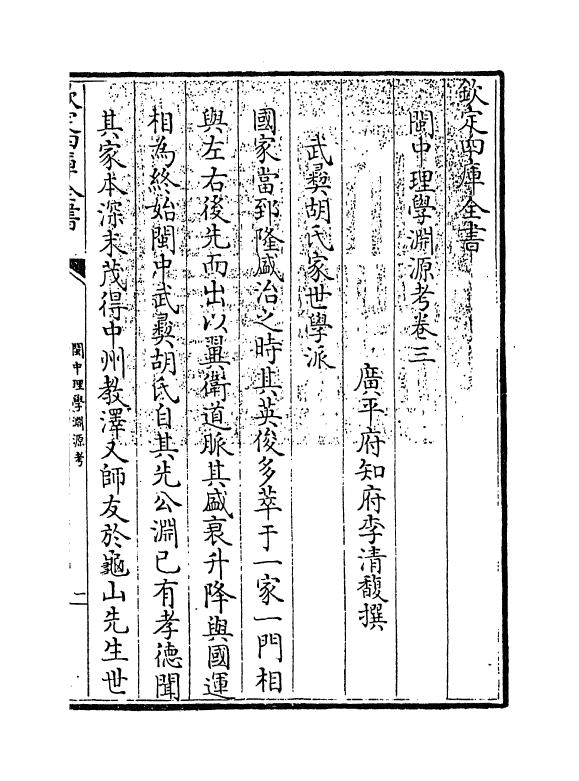 欽定四庫全書
閩中理學淵源考卷三
廣平府知府李清馥撰
武彛胡氏家世學派
國家當郅隆盛治之時其英俊多萃于一家一門相
與左右後先而出以翼衛道脈其盛衰升降與國運
相為終始閩中武彛胡氏自其先公淵已有孝德聞
其家本深末茂得中州教澤又師友於龜山先生世
欽定四庫全書
閩中理學淵源考
二